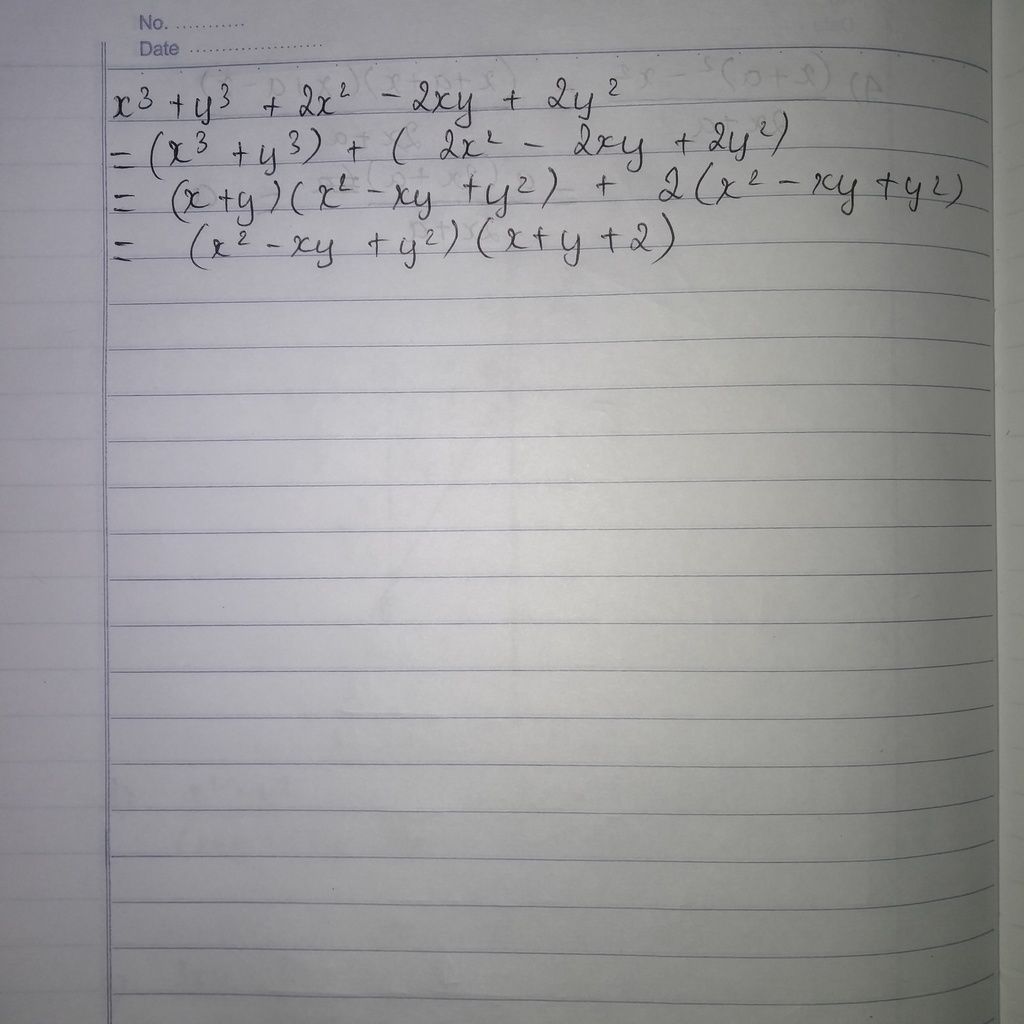 No. ...........
Date ......................
x³ + y³ + 2x² - 2xy + 2y²
= (x³ + y³) + ( 2x² - 2xy + 2y²)
= (x + y) (x² - xy + y²) + 2 (x² - xy + y²)
= (x² - xy + y²) (x + y + 2)